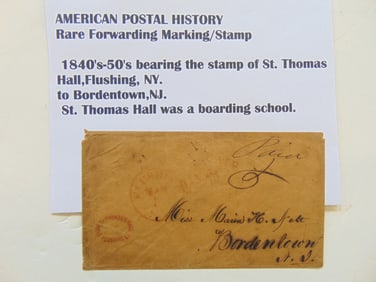 AMERICAN POSTAL HISTORY
Rare Forwarding Marking/Stamp
1840's-50's bearing the stamp of St. Thomas
Hall,Flushing, NY.
to Bordentown,NJ.
St. Thomas Hall was a boarding school.
Miss Maria H.
Bordentown
N. J.